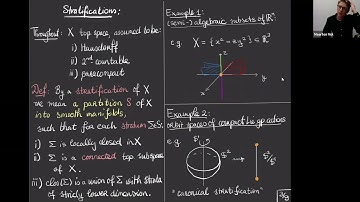 Stratifications:
Throughout: X top space, assumed to be:
i) Hausdorff
ii) 2nd countable
iii) paracompact
Def: By a stratification of X
we mean a partition S of X
into smooth manifolds,
such that for each stratum Σ∈S:
i) Σ is locally closed in X
ii) Σ is a connected top subspace
of X.
iii) clos(Σ) is a union of Σ with strata
of strictly lower dimension.
Example 1:
(semi-)algebraic subsets of ℝⁿ:
e.g. X = {x² = zy²} ⊆ ℝ³
z
y
x
Example 2:
orbit spaces of compact Lie gp actions
e.g. S¹
S²
S²/S¹
"canonical stratification"
Maarten Mol